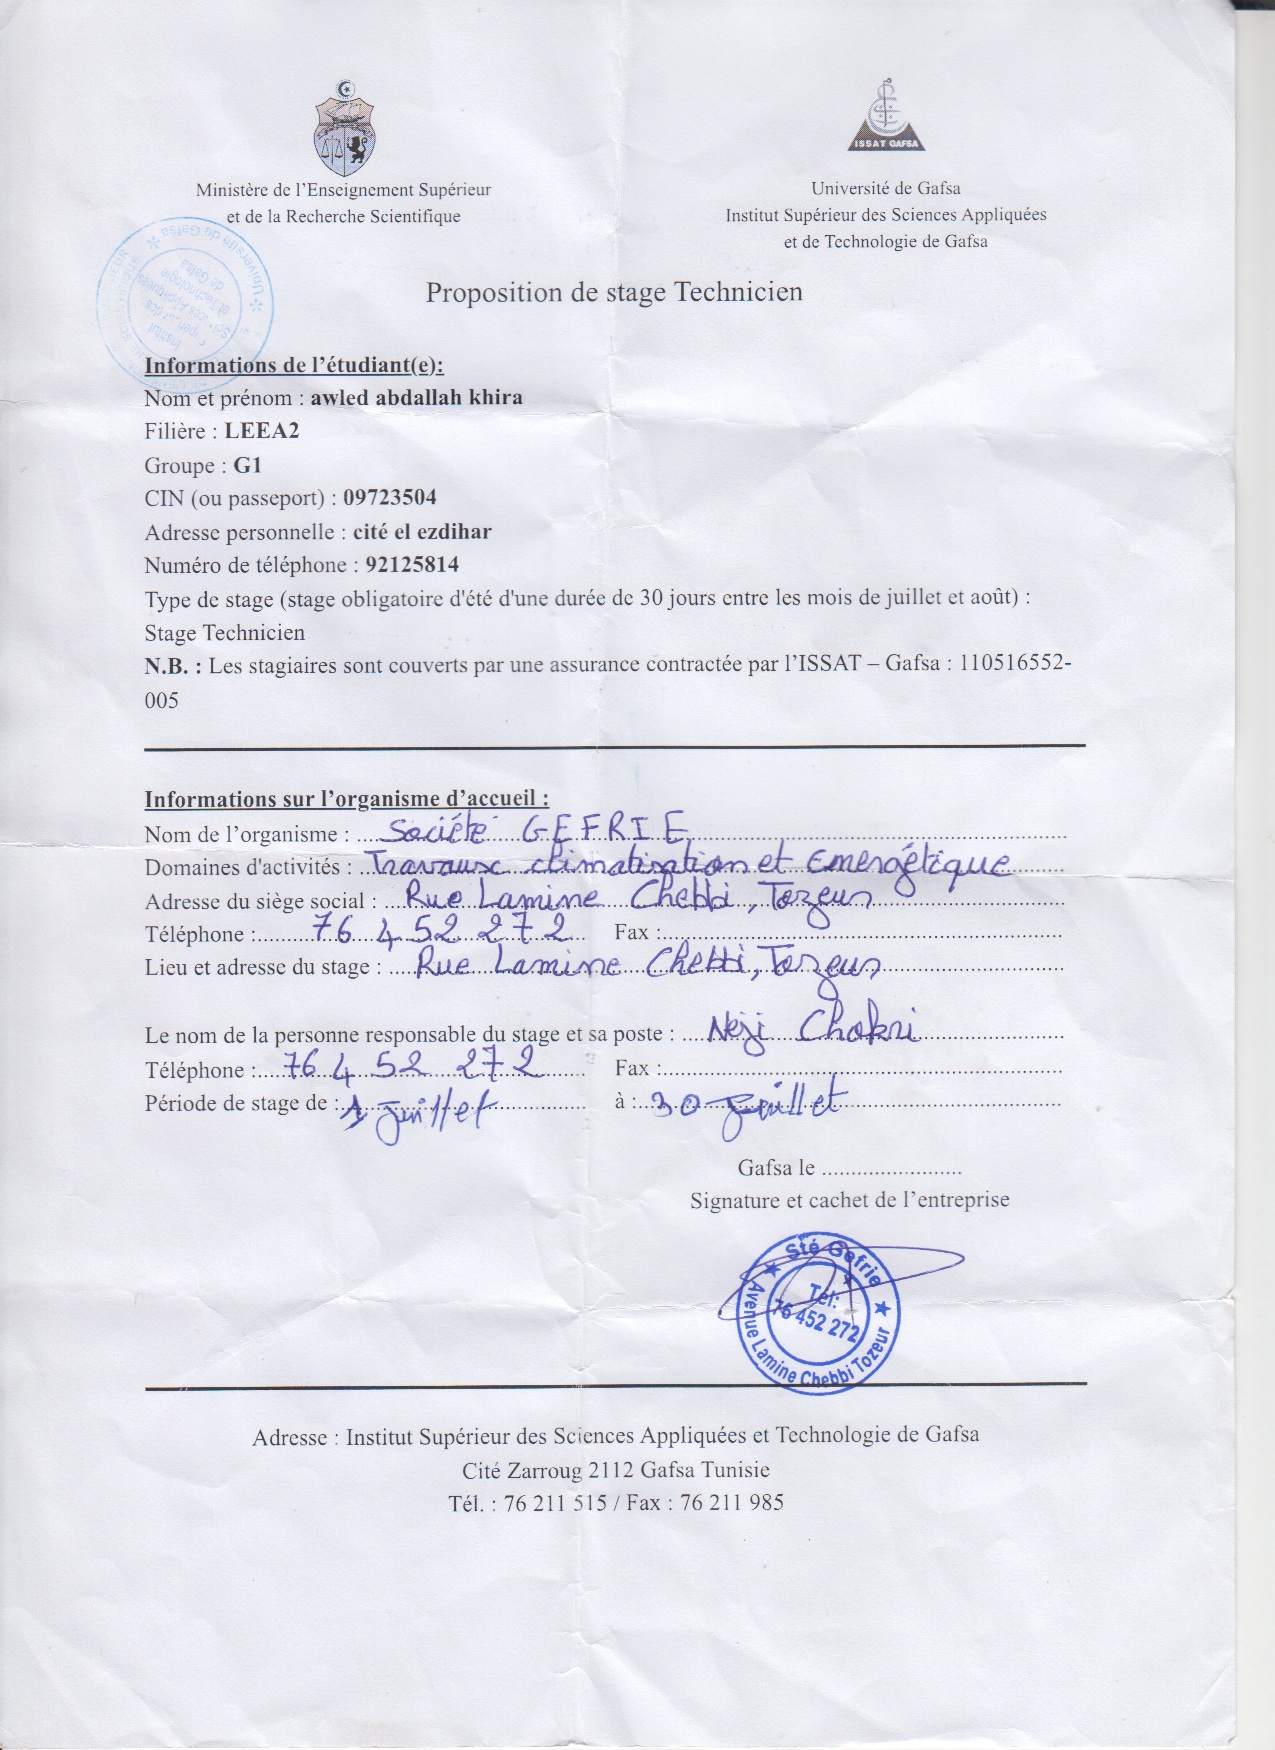 Ministère de l'Enseignement Supérieur
et de la Recherche Scientifique
ISSAT GAFSA
Université de Gafsa
Institut Supérieur des Sciences Appliquées
et de Technologie de Gafsa
Université de Gafsa
Institut
et Technologie
de Gafsa
Proposition de stage Technicien
Informations de l'étudiant(e):
Nom et prénom : awled abdallah khira
Filière : LEEA2
Groupe : G1
CIN (ou passeport) : 09723504
Adresse personnelle : cité el ezdihar
Numéro de téléphone : 92125814
Type de stage (stage obligatoire d'été d'une durée de 30 jours entre les mois de juillet et août) :
Stage Technicien
N.B. : Les stagiaires sont couverts par une assurance contractée par l'ISSAT – Gafsa : 110516552-
005
Informations sur l'organisme d'accueil :
Nom de l'organisme : Société GEFRIE
Domaines d'activités : Travaux climatisation et Emergétique
Adresse du siège social : Rue Lamine Chebbi, Tozeur
Téléphone : 76 452 272 Fax :
Lieu et adresse du stage : Rue Lamine Chebbi, Tozeur
Le nom de la personne responsable du stage et sa poste : Neji Chokri
Téléphone : 76 452 272 Fax :
Période de stage de : 1 juillet à : 30 juillet
Gafsa le ........................
Signature et cachet de l'entreprise
Sté Gefrie
Tél:
76 452 272
Avenue Lamine Chebbi Tozeur
Adresse : Institut Supérieur des Sciences Appliquées et Technologie de Gafsa
Cité Zarroug 2112 Gafsa Tunisie
Tél. : 76 211 515 / Fax : 76 211 985